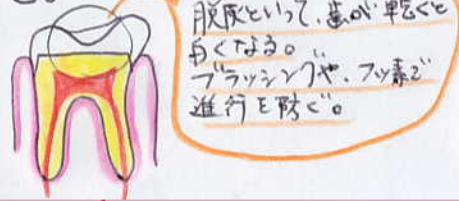 脱灰といって、歯が乾くと
白くなる。
ブラッシングや、フッ素で
進行を防ぐ。